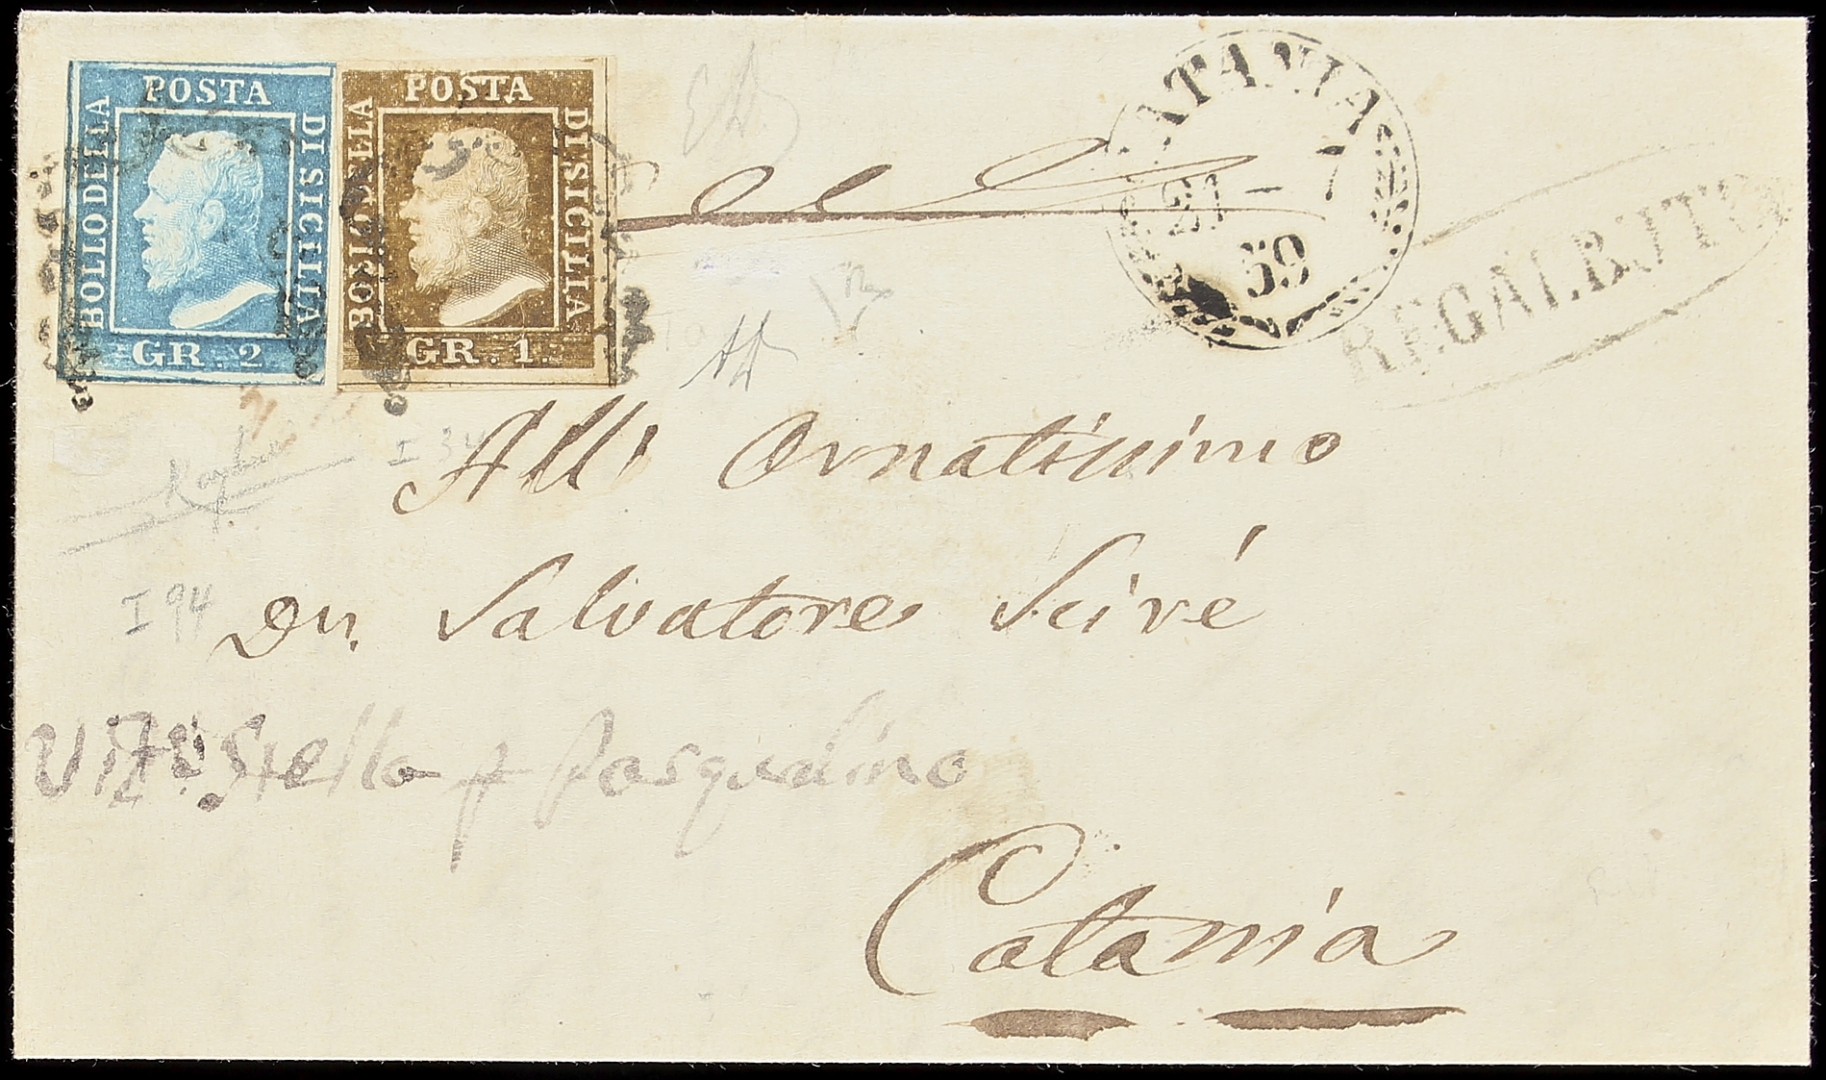 POSTA
BOLLO DELLA
DI SICILIA
GR. 2
POSTA
BOLLO DELLA
DI SICILIA
GR. 1.
CATANIA
21 - 7
59
REGALBUTO
I 34
All' Ornatissimo
Dn. Salvatore Scivé
I 94
Stella Pasqualino
Catania